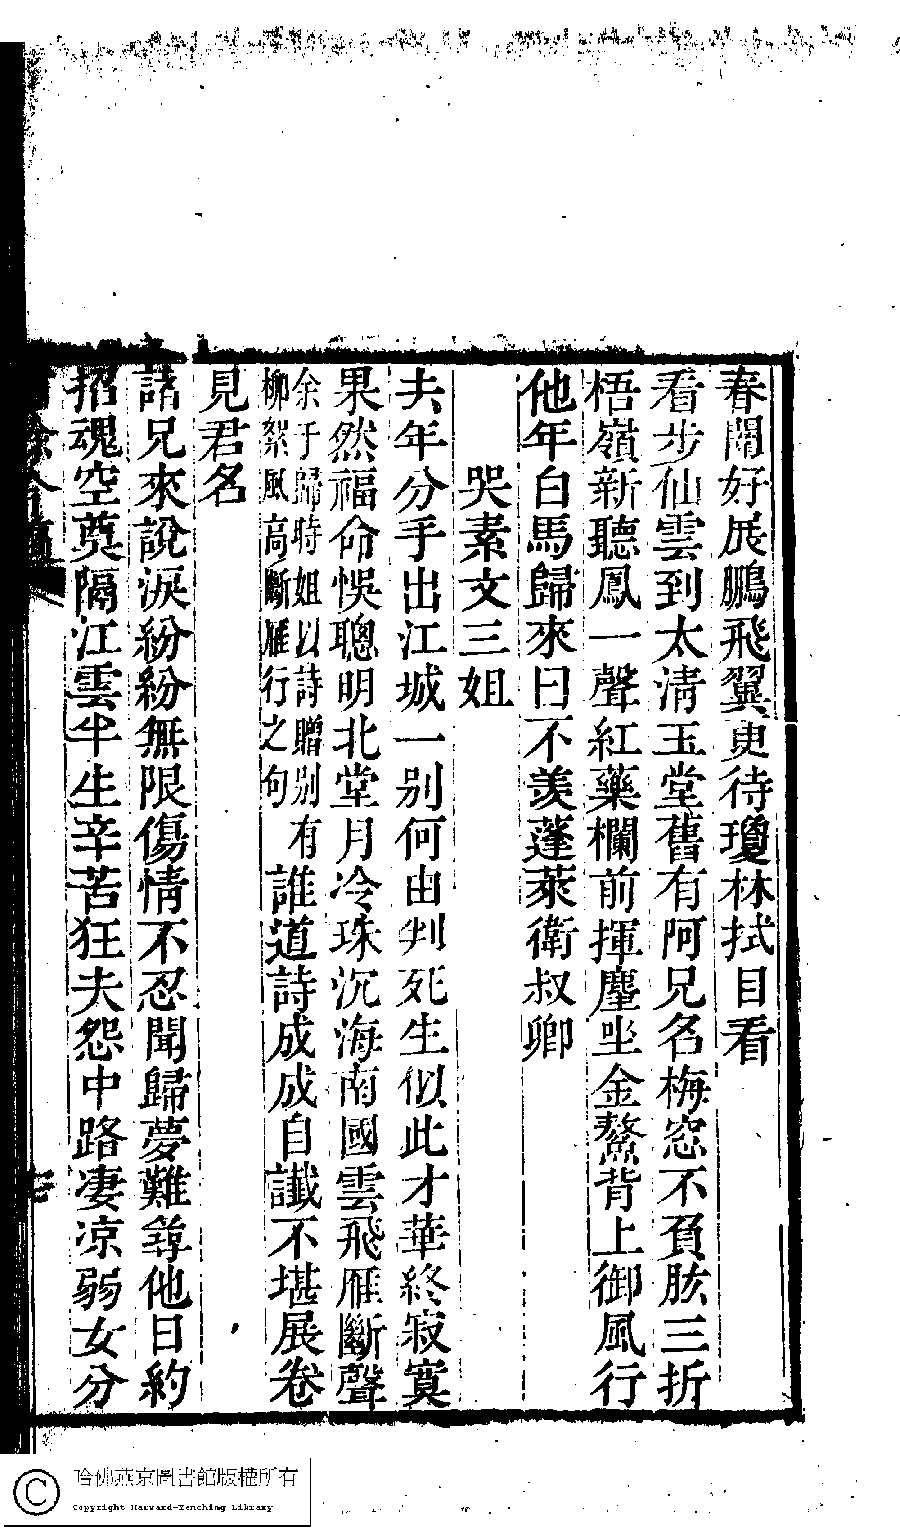 春闈好展鵬飛翼更待瓊林拭目看
看步仙雲到太清玉堂舊有阿兄名梅窓不負肱三折
梧嶺新聽鳳一聲紅藥欄前揮麈坐金鰲背上御風行
他年白馬歸來日不羨蓬萊衛叔卿
哭素文三姐
去年分手出江城一別何由判死生似此才華終寂寞
果然福命悞聰明北堂月冷珠沉海南國雲飛雁斷聲
余于歸時姐以詩贈別有
柳絮風高斷雁行之句
誰道詩成成自讖不堪展卷
見君名
諸兄來說淚紛紛無限傷情不忍聞歸夢難尋他日約
招魂空奠隔江雲半生辛苦狂夫怨中路凄凉弱女分
哈佛燕京圖書館版權所有
Copyright Harvard-Yenching Library